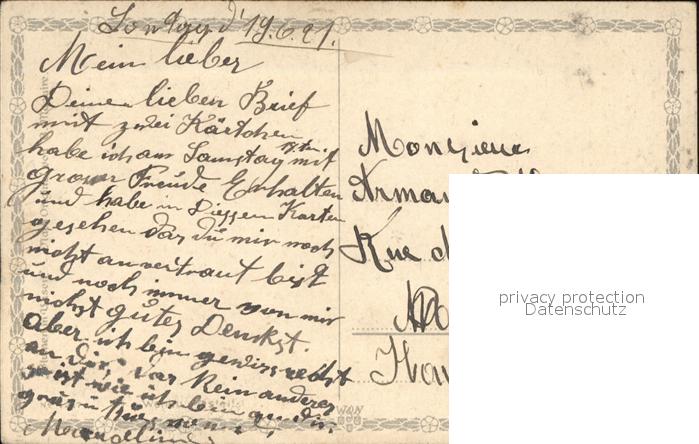 Sontag d' 19.6.21.
Mein lieber
Deinen lieben Brief
mit zwei Kärtchen
habe ich am Samstag mit
groser Freude Erhalten
und habe in Diessen Karten
gesehen das du mir noch
nicht anvertraut bist
und noch immer von mir
nichst gutes Denkst.
aber ich bin gewiss
an dir, das Kein anderer
so ist wie ich bin an dir
Monsieur
Rue d
privacy protection
Datenschutz